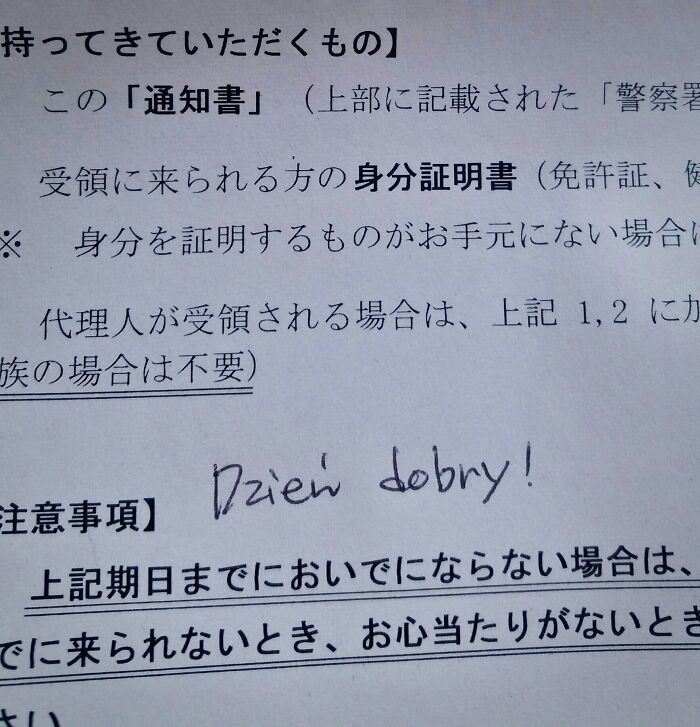 持ってきていただくもの】
この「通知書」（上部に記載された「警察署
受領に来られる方の身分証明書（免許証、健
※ 身分を証明するものがお手元にない場合は
代理人が受領される場合は、上記 1,2 に加
族の場合は不要）
Dzień dobry!
注意事項】
上記期日までにおいでにならない場合は、
でに来られないとき、お心当たりがないとき
さい